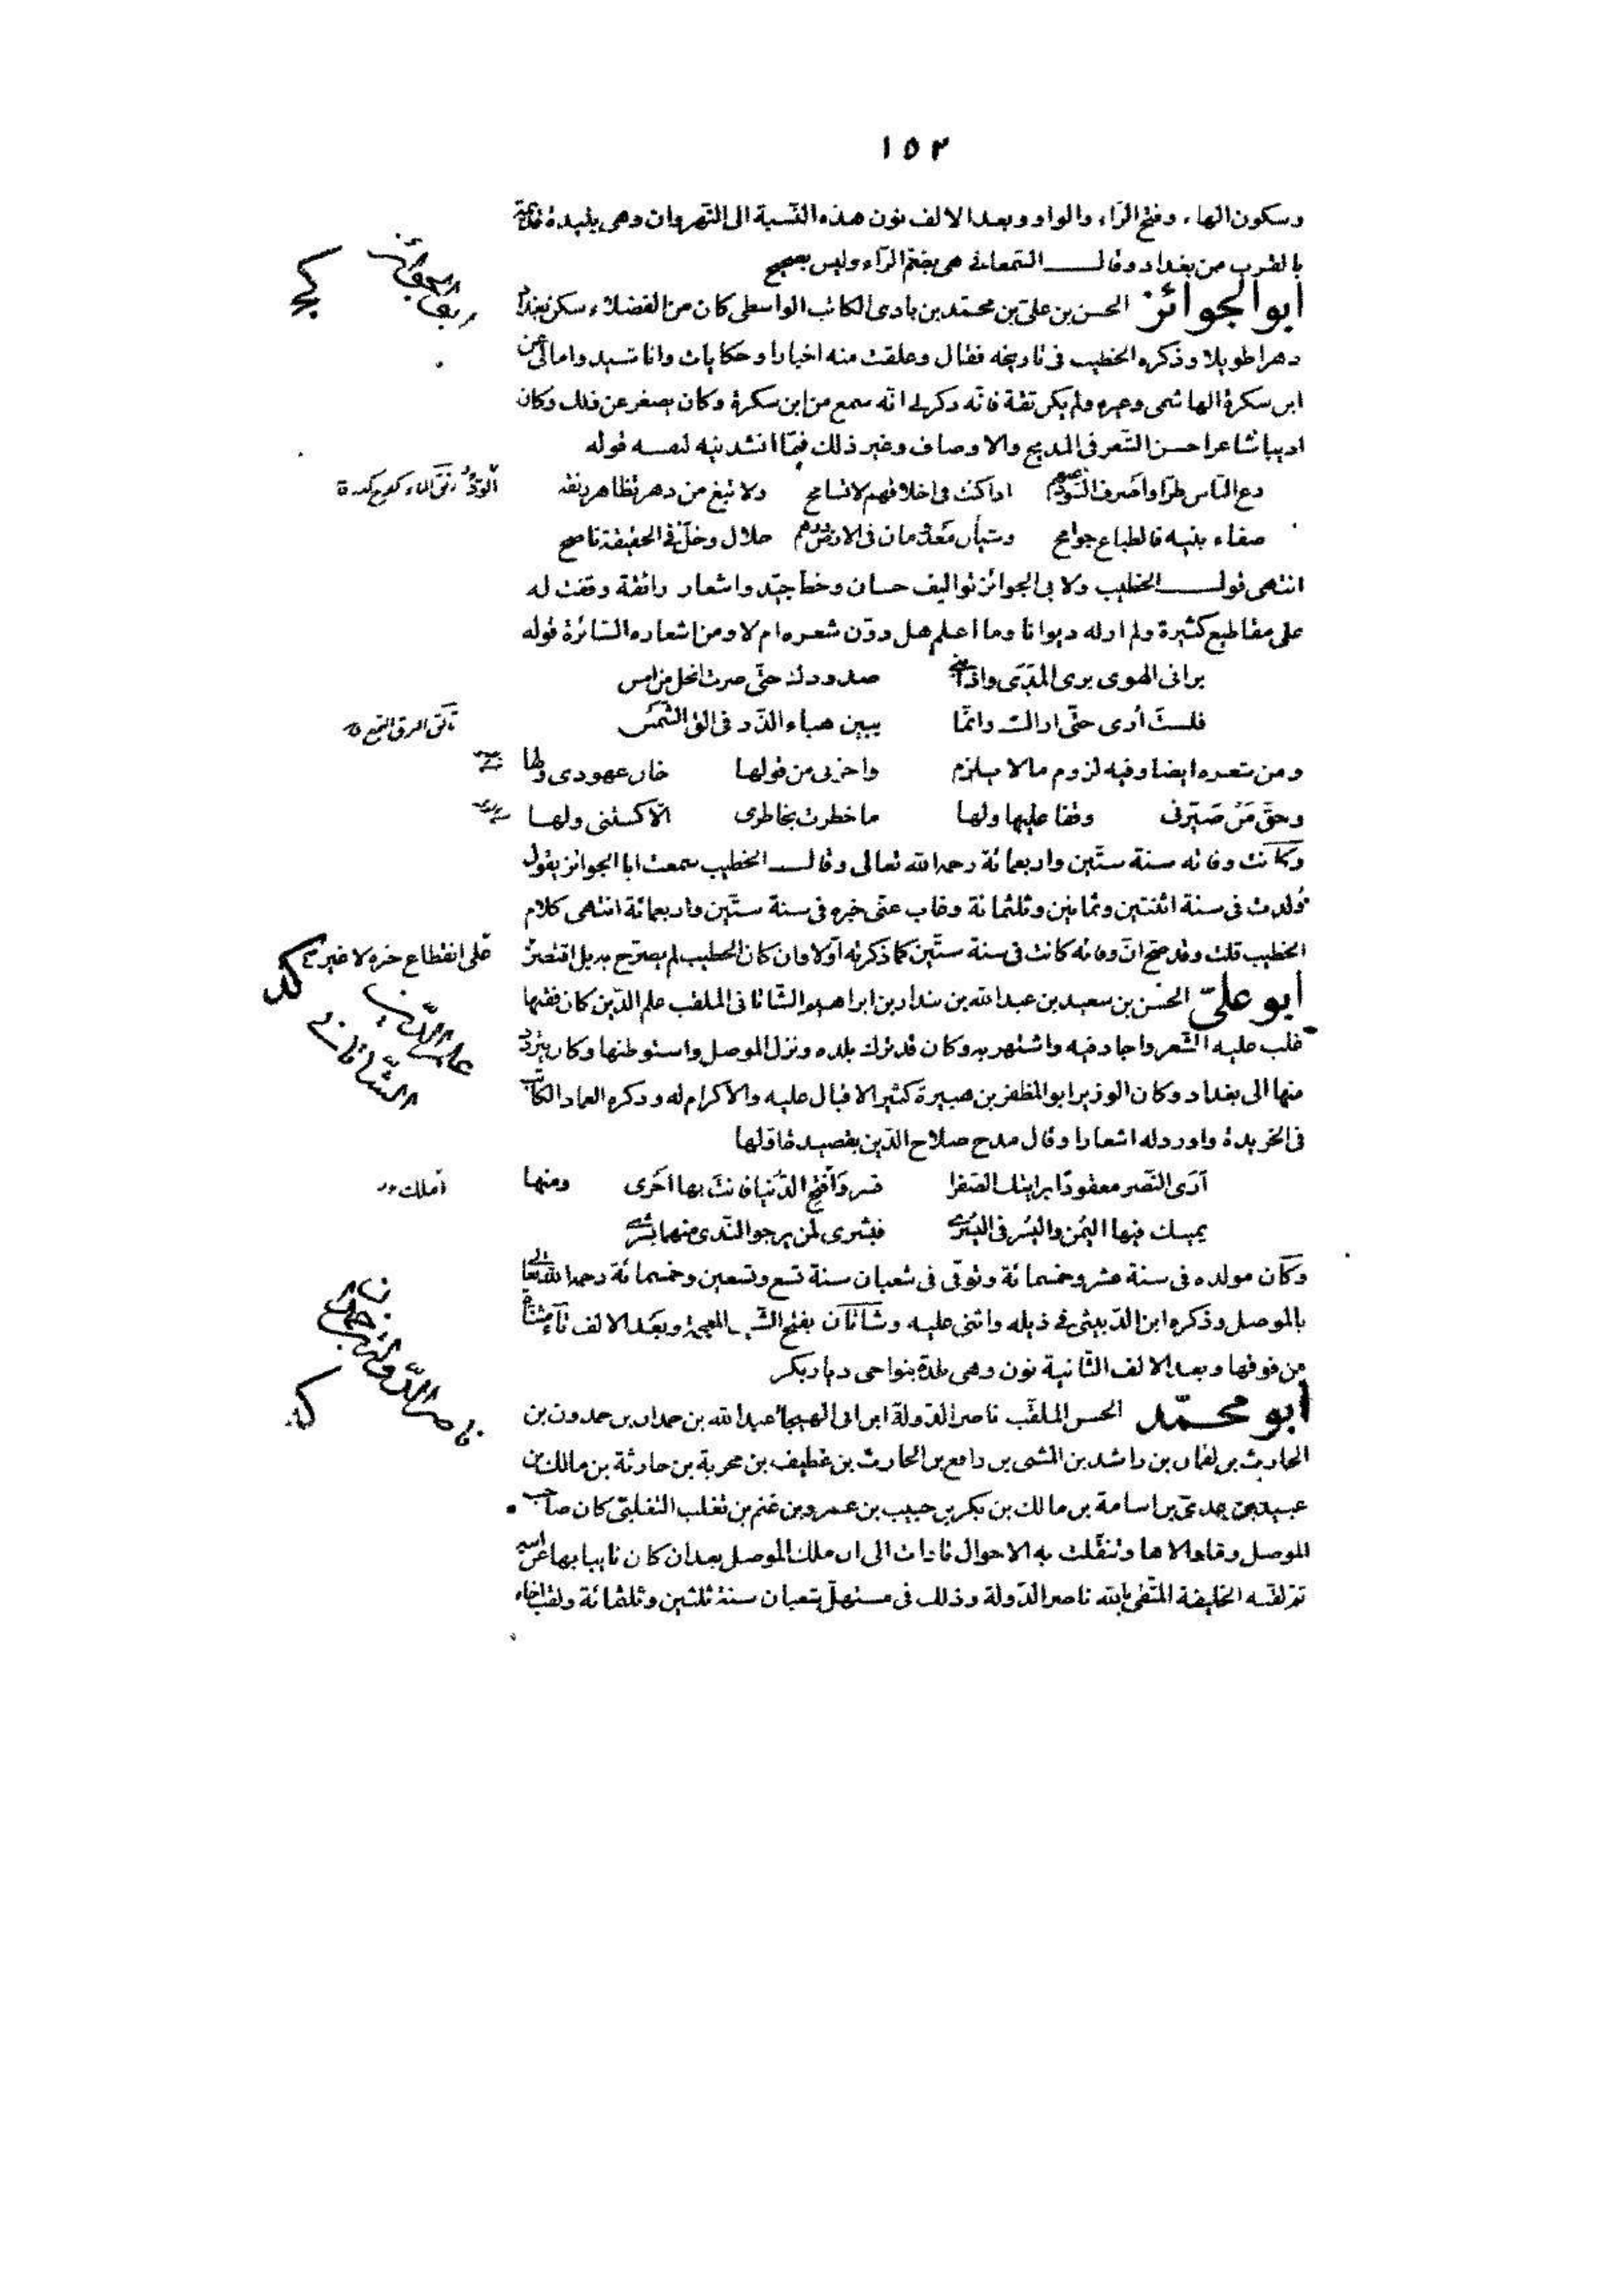 ١٥٢
وسكون الهاء وفتح الرّاء والواو وبعد الالف نون هذه النّسبة الى النّهروان وهى بليدة قديمة
بالقرب من بغداد وقال السّمعانى هى بضمّ الرّاء وليس بصحيح
ابو الجوائز الحسن بن علىّ بن محمّد بن بادى الكاتب الواسطى كان من الفضلاء سكن بغداد
دهرا طويلا وذكره الخطيب فى تاريخه فقال وعلقت منه اخبارا وحكايات واناشيد وامالى عن
ابن سكرة الهاشمى وغيره ولم يكن ثقة فانّه ذكر لى انّه سمع من ابن سكرة وكان يصغر عن ذلك وكان
اديبا شاعرا حسن الشّعر فى المديح والاوصاف وغير ذلك فممّا انشدنيه لنفسه قوله
دع النّاس طرّا واصرف الودّ عنهم اذا كنت فى اخلاقهم لا تسامح ولا تبغ من دهر تظاهر رنقه
صفاء بنيه فالطباع جوامح وشيئان معدومان فى الارض درهم حلال وخلّ فى الحقيقة ناصح
انتهى قول الخطيب ولابى الجوائز تواليف حسان وخطّ جيّد واشعار رائقة وقفت له
على مقاطيع كثيرة ولم ار له ديوانا وما اعلم هل دوّن شعره ام لا ومن اشعاره السّائرة قوله
برانى الهوى برى المدى واذابنى صدودك حتّى صرت انحل من امس
فلست أرى حتّى اراك وانّما يبين هباء الذّر فى الق الشّمس
تألّق البرق التمع
ومن شعره ايضا وفيه لزوم ما لا يلزم واحزنى من قولها خان عهودى ولها
وحقّ مَن صيّرنى وقفا عليها ولها ما خطرت بخاطرى الّا كستنى ولها
وكانت وفاته سنة ستّين واربعمائة رحمه الله تعالى وقال الخطيب سمعت ابا الجوائز يقول
وُلدت فى سنة اثنتين وثمانين وثلثمائة وغاب عنّى خبره فى سنة ستّين واربعمائة انتهى كلام
الخطيب قلت وقد صحّ انّ وفاته كانت فى سنة ستّين كما ذكرته اوّلا وان كان الخطيب لم يصرّح به بل اقتصر
على انقطاع خبره لا غير
ابو علىّ الحسن بن سعيد بن عبد الله بن بندار بن ابراهيم الشّاتانى الملقب علم الدّين كان فقيها
علم الدّين
الشّاتانى
غلب عليه الشّعر واجاد فيه واشتهر به وكان قد ترك بلده ونزل الموصل واستوطنها وكان يتردّد
منها الى بغداد وكان الوزير ابو المظفر بن هبيرة كثير الاقبال عليه والاكرام له وذكره العماد الكاتب
فى الخريدة واورد له اشعارا وقال مدح صلاح الدّين بقصيدة اوّلها
أرى النّصر معقودًا برايتك الصّفرا فسر وأفتح الدّنيا فانتَ بها احرى ومنها
يمينك فيها اليُمن واليُسر فى اليُسرى فبشرى لمن يرجو النّدى منهما بشرى
وكان مولده فى سنة عشر وخمسمائة وتوفّى فى شعبان سنة تسع وتسعين وخمسمائة رحمه الله تعالى
بالموصل وذكره ابن الدّبيثى فى ذيله واثنى عليه وشاتان بفتح الشّين المعجمة وبعد الالف تاء مثنّاة
من فوقها وبعد الالف الثّانية نون وهى بلدة بنواحى ديار بكر
ابو محمّد الحسن الملقّب ناصر الدّولة ابن ابى الهيجاء عبد الله بن حمدان بن حمدون بن
ناصر الدّولة بن حمدان
الحارث بن لقمان بن راشد بن المثنى بن رافع بن الحارث بن غطيف بن محربة بن حارثة بن مالك بن
عبيد بن عدىّ بن اسامة بن مالك بن بكر بن حبيب بن عمرو بن غنم بن تغلب التغلبىّ كان صاحب
الموصل وما والاها وتنقّلت به الاحوال تارات الى ان ملك الموصل بعد ان كان نايبا بها عن ابيه
ثمّ لقّبه الخليفة المتّقى بالله ناصر الدّولة وذلك فى مستهلّ شعبان سنة ثلثين وثلثمائة ولقب اخاه